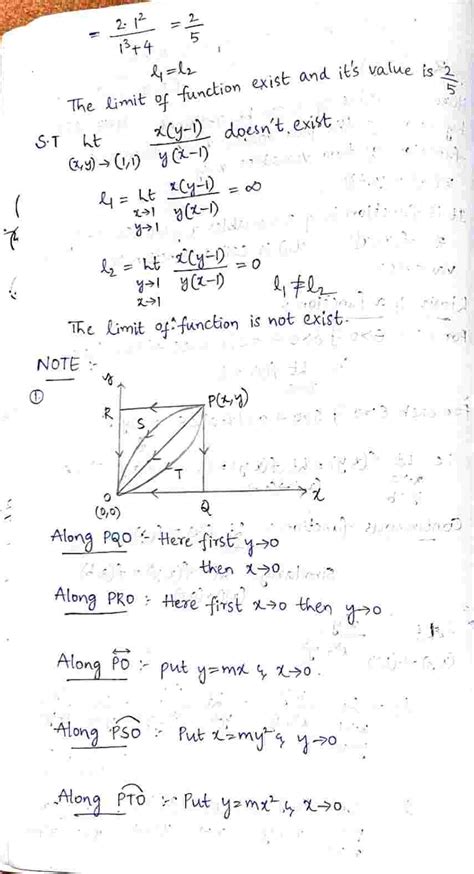 = 2·1² / 1³+4 = 2/5
l₁ = l₂
The limit of function exist and it's value is 2/5.
S.T Lt (x,y)→(1,1) x(y-1) / y(x-1) doesn't exist.
l₁ = Lt x→1 y→1 x(y-1) / y(x-1) = ∞
l₂ = Lt y→1 x→1 x(y-1) / y(x-1) = 0 l₁ ≠ l₂
The limit of function is not exist.
NOTE :-
①
y
R
P(x,y)
S
T
O
(0,0)
Q
x
Along PQO :- Here first y→0
then x→0
Along PRO :- Here first x→0 then y→0
Along PO :- put y=mx & x→0
Along PSO :- Put x=my² & y→0
Along PTO :- Put y=mx² & x→0.